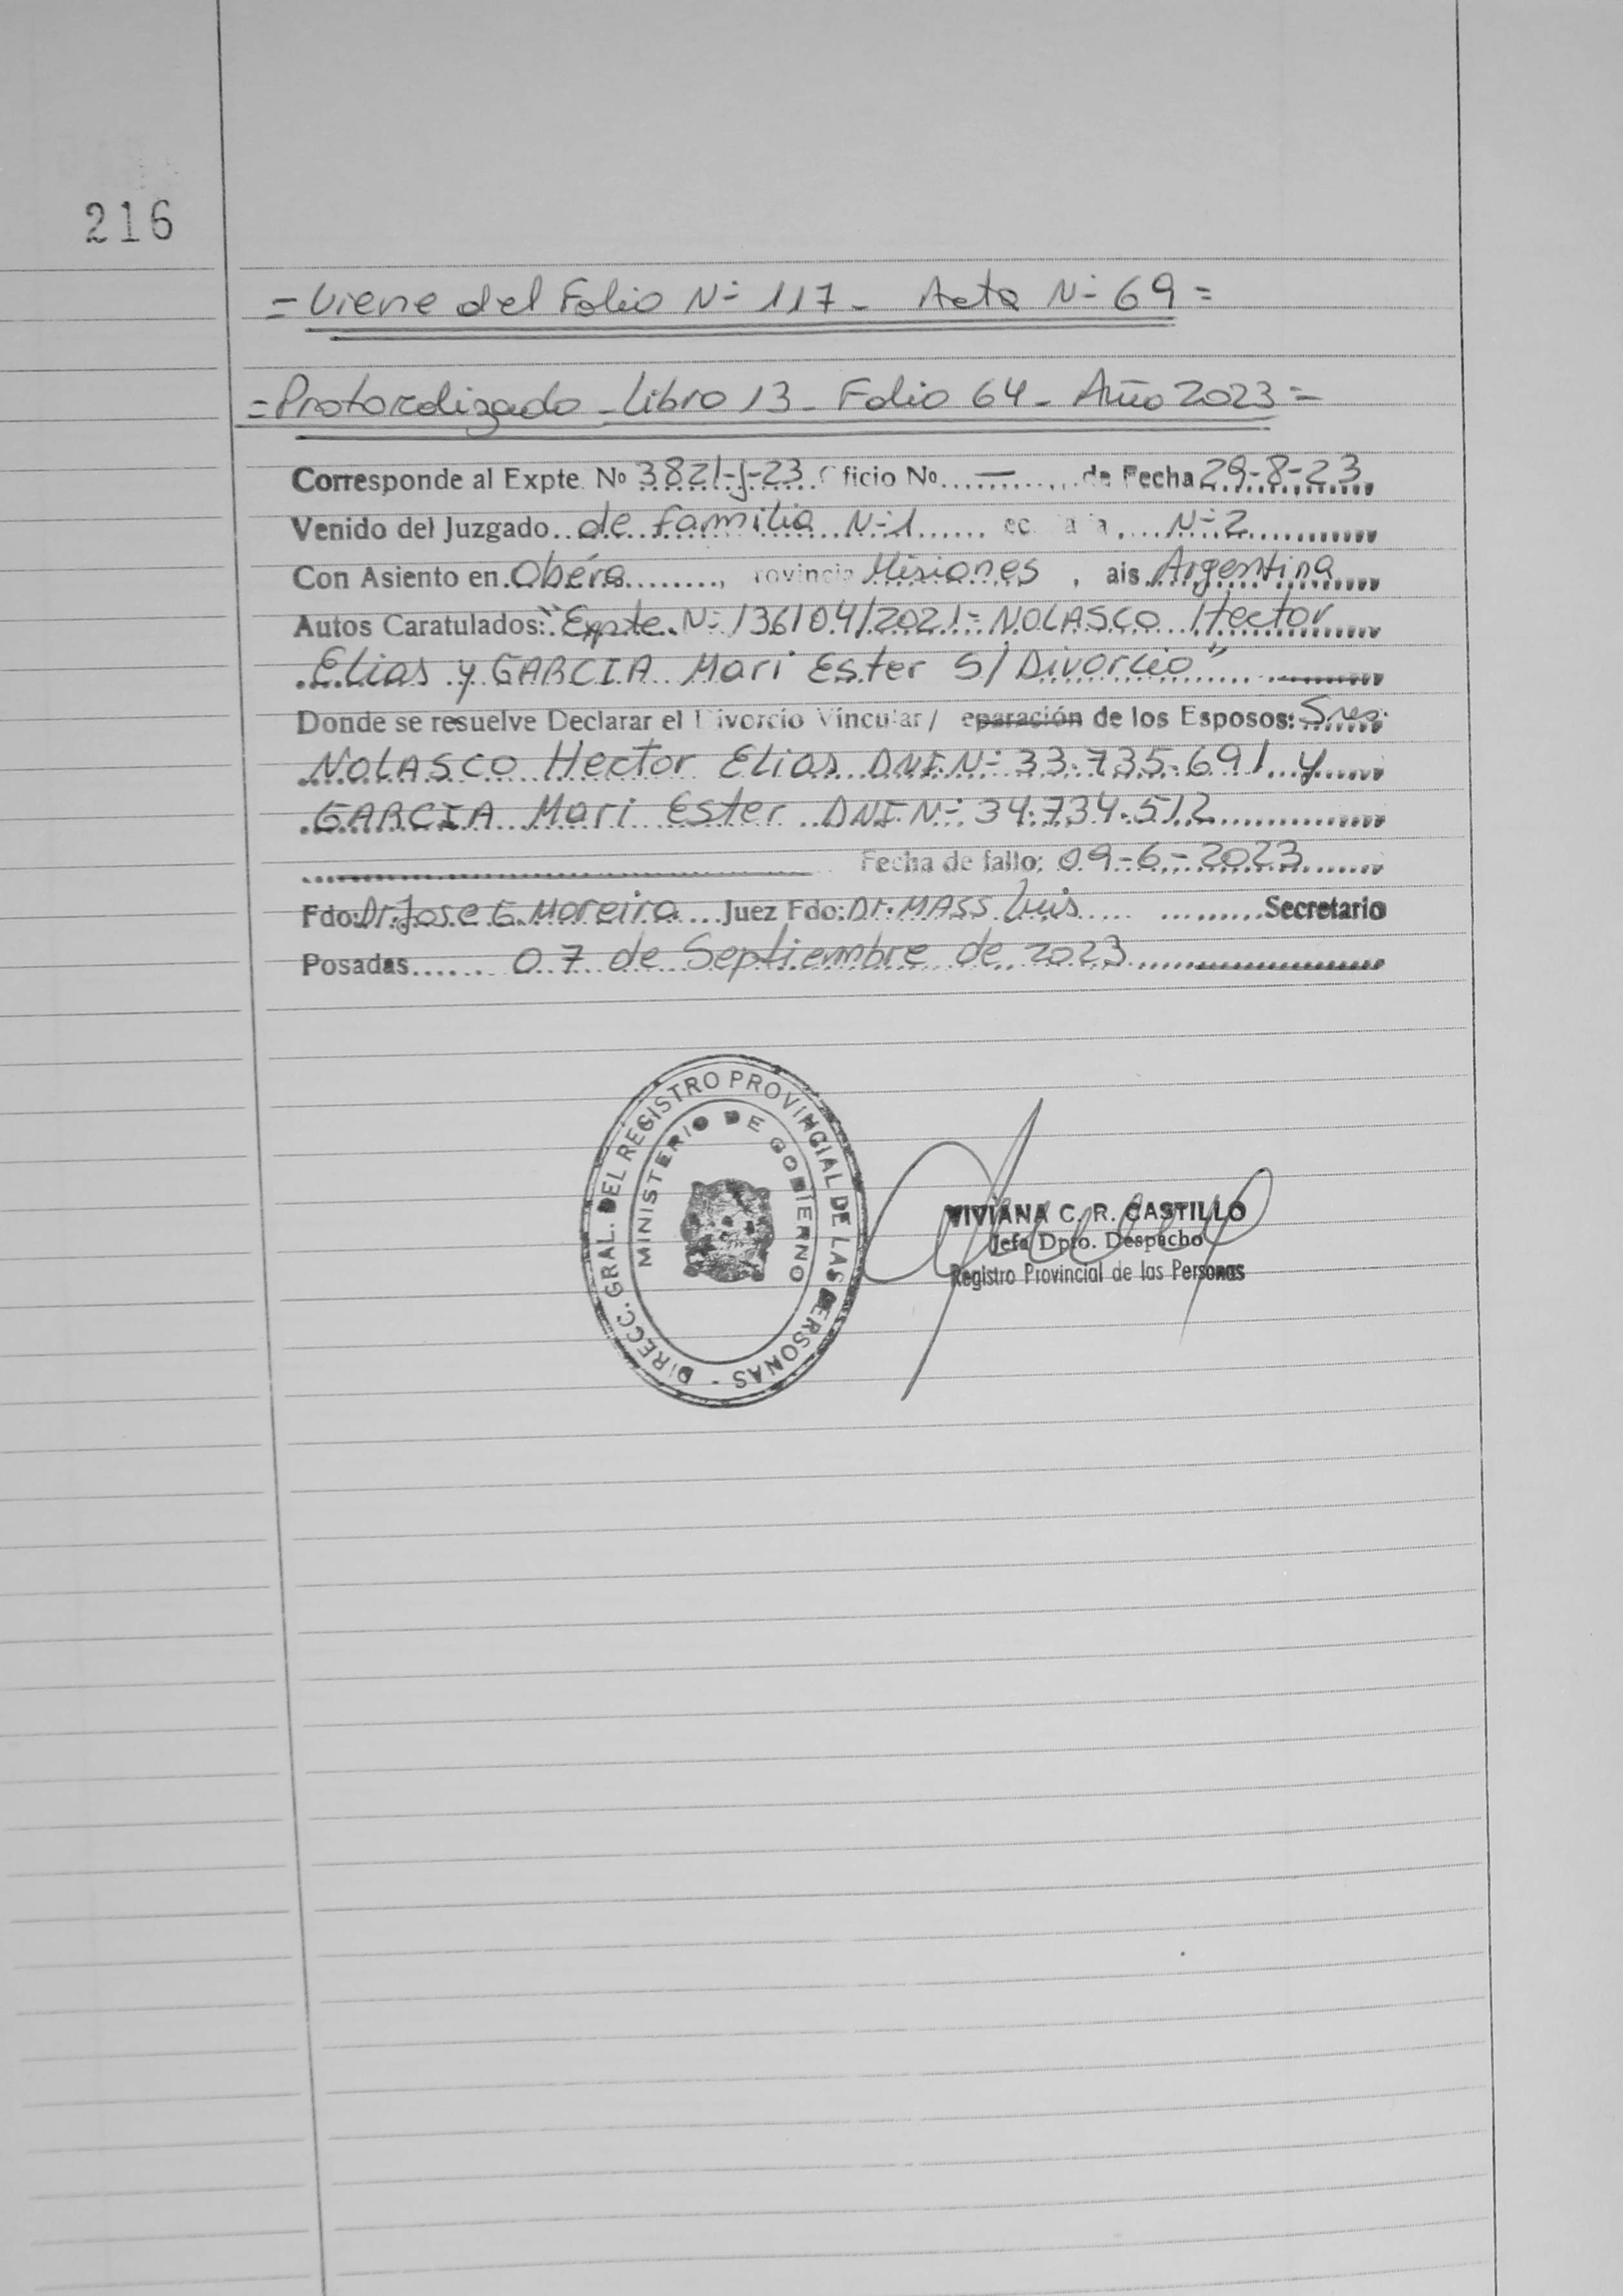 216
= Viene del Folio N° 117 - Acta N° 69 =
= Protocolizado - Libro 13 - Folio 64 - Año 2023 =
Corresponde al Expte. No 3821-J-23 Oficio No. — de Fecha 29-8-23
Venido del Juzgado de familia N°1 N°2
Con Asiento en Oberá, rovincia Misiones, ais Argentina
Autos Caratulados: "Expte. N° 136104/2021 - NOLASCO Hector
Elias y GARCIA Mari Ester S/Divorcio"
Donde se resuelve Declarar el Divorcio Vincular / eparación de los Esposos: Sres.
NOLASCO Hector Elias DNI N° 33.735.691 y
GARCIA Mari Ester DNI N° 34.734.512
Fecha de fallo: 09-6-2023
Fdo: Dr. Jose G. Moreira Juez Fdo: Dr. MASS Luis Secretario
Posadas 07 de Septiembre de 2023
DIRECC. GRAL. DEL REGISTRO PROVINCIAL DE LAS PERSONAS -
MINISTERIO DE GOBIERNO
VIVIANA C. R. CASTILLO
Jefa Dpto. Despacho
Registro Provincial de las Personas